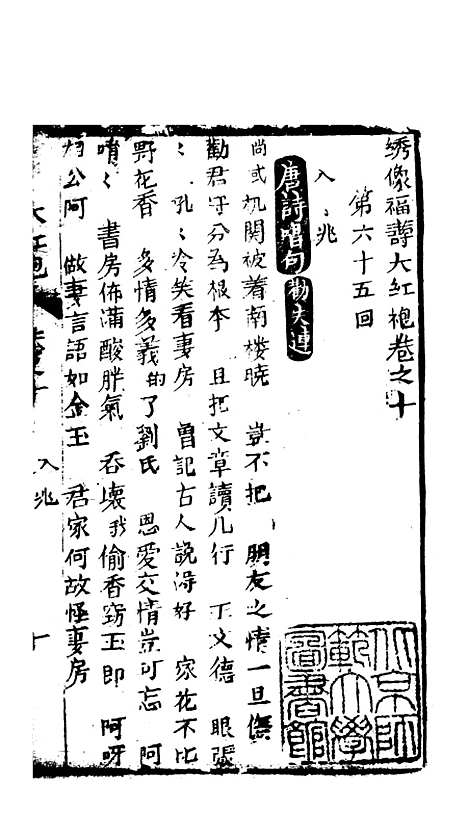 绣像福壽大红袍卷之十
第六十五回
入〻兆
唐詩唱句 勸夫連
尚或机関被着南楼晓 豈不把朋友之情一旦傷
勸君守分為根李 且把文章讀几行 丁文德 眼張
〻 孔〻冷笑看妻房 曾記古人説淂好 家花不比
野花香 多情多義的了劉氏 恩愛交情豈可忘 阿
唷〻 書房佈滿酸胖氣 吞壞我偷香窃玉郎 阿呀
相公阿 做妻言語如金玉 君家何故怪妻房
大红袍 卷之十 入兆 十
北京師範大學圖書館